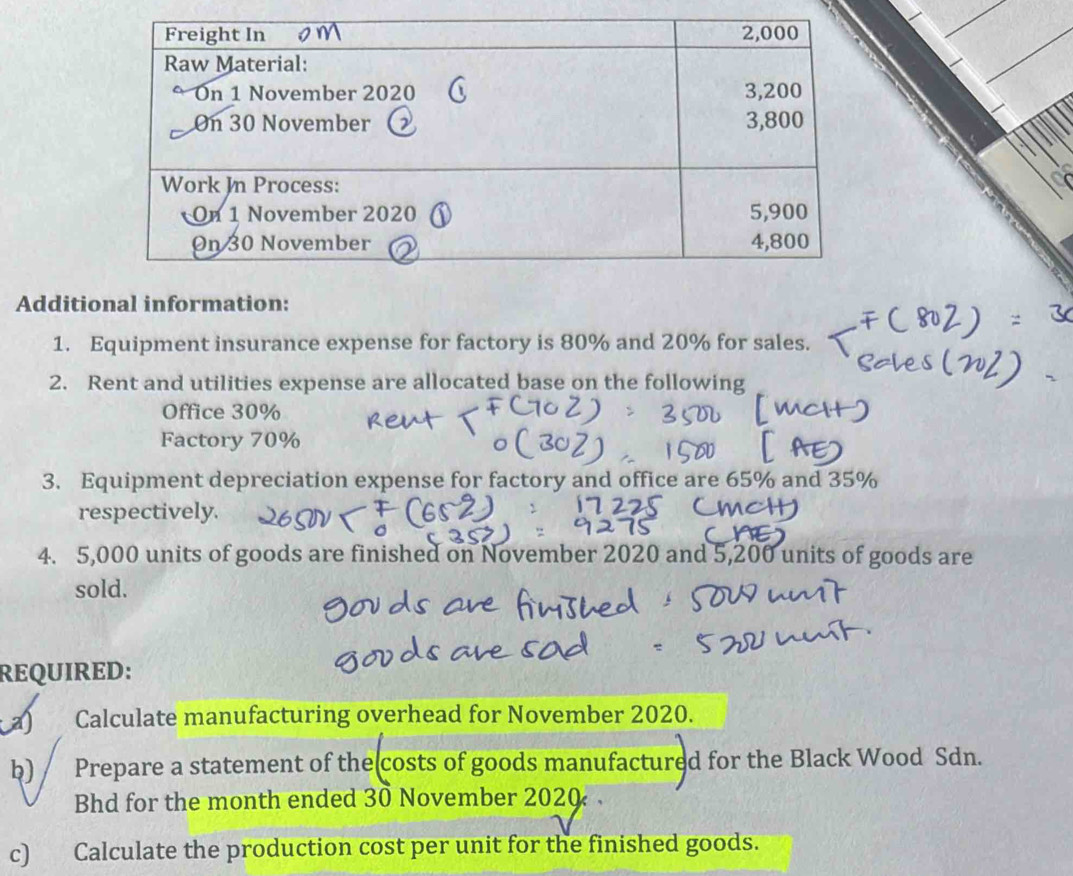 Freight In OM 2,000
Raw Material:
On 1 November 2020 ① 3,200
On 30 November ② 3,800
Work In Process:
On 1 November 2020 ① 5,900
On 30 November ② 4,800
Additional information:
F (80%) = 30
1. Equipment insurance expense for factory is 80% and 20% for sales.
Sales (20%) =
2. Rent and utilities expense are allocated base on the following
Office 30%
Rent F (70%) = 3500 [MOH]
Factory 70%
O (30%) = 1500 [AE]
3. Equipment depreciation expense for factory and office are 65% and 35%
respectively. 26500 F (65%) = 17225 (MOH)
O (35%) = 9275 (AE)
4. 5,000 units of goods are finished on November 2020 and 5,200 units of goods are
sold.
goods are finished = 5000 unit
goods are sad = 5200 unit.
REQUIRED:
a) Calculate manufacturing overhead for November 2020.
b) Prepare a statement of the costs of goods manufactured for the Black Wood Sdn.
Bhd for the month ended 30 November 2020.
c) Calculate the production cost per unit for the finished goods.